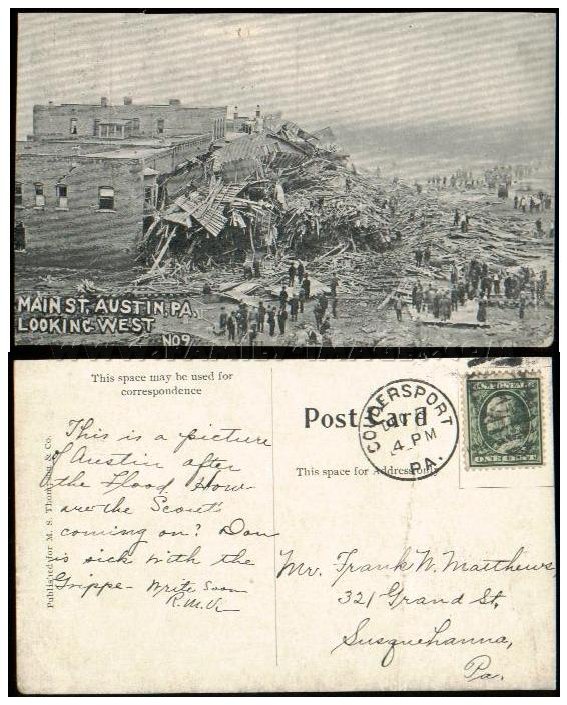 MAIN ST, AUSTIN, PA.
LOOKING WEST
NO 9
This space may be used for
correspondence
Post Card
This space for Address only
Published for M. S. Thompson & Co.
COUDERSPORT
4 PM
PA.
This is a picture
of Austin after
the Flood How
are the Scouts
coming on? Don
is sick with the
Grippe - Write Soon
Mr. Frank N. Matthews,
321 Grand St,
Susquehanna,
Pa.